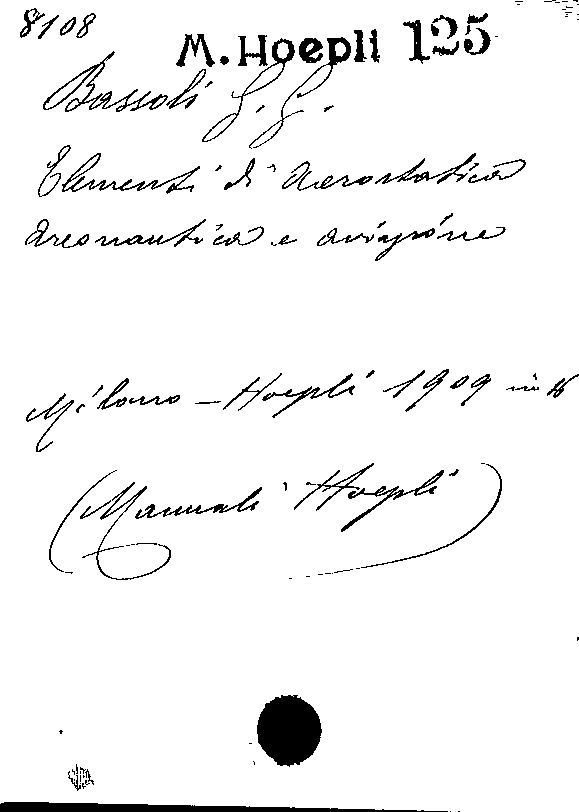 8108
M. Hoepli 125
Bassoli G. G.
Elementi di Aerostatica
Areonautica e aviazione
Milano – Hoepli 1909 in 16
(Manuali Hoepli)